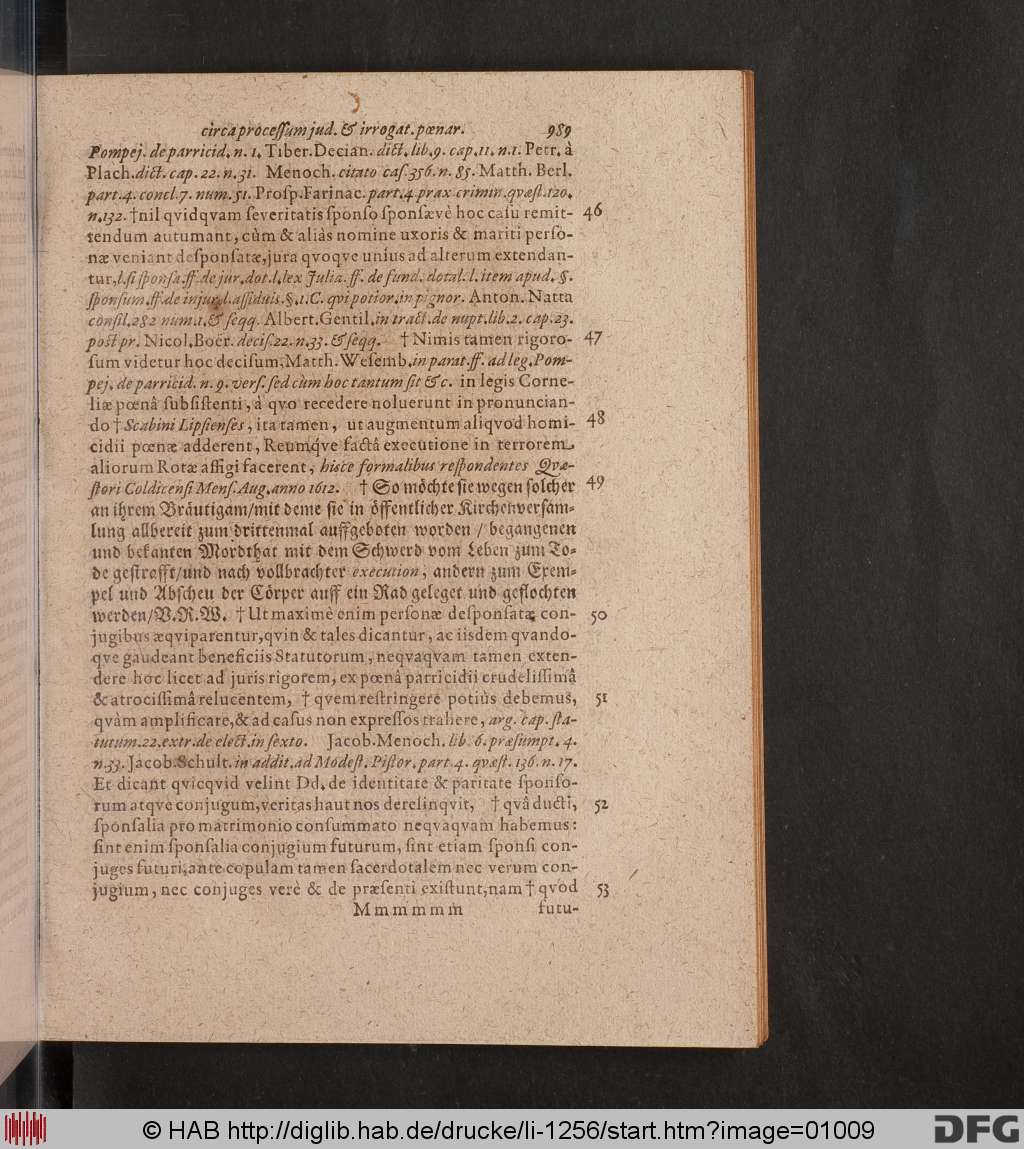 circa processum jud. & irrogat. pœnar. 989
Pompej. de parricid. n. 1. Tiber. Decian. dict. lib. 9. cap. 11. n. 1. Petr. à
Plach. dict. cap. 22. n. 31. Menoch. citato cas. 356. n. 85. Matth. Berl.
part. 4. concl. 7. num. 51. Prosp. Farinac. part. 4 prax crimin. qvæst. 120.
n. 132. † nil qvidqvam severitatis sponso sponsævè hoc casu remit- 46
tendum autumant, cùm & aliàs nomine uxoris & mariti perso-
næ veniant desponsatæ, jura qvoqve unius ad alterum extendan-
tur, l. si sponsa. ff. de jur. dot. l. lex Julia. ff. de fund. dotal. l. item apud. §.
sponsum. ff. de injur. l. assiduis. §. 1. C. qvi potior. in pignor. Anton. Natta
consil. 282 num. 1. & seqq. Albert. Gentil. in tract. de nupt. lib. 2. cap. 23.
post pr. Nicol. Boër. decis. 22. n. 33. & seqq. † Nimis tamen rigoro- 47
sum videtur hoc decisum, Matth. Wesemb. in parat. ff. ad leg. Pom-
pej. de parricid. n. 9. vers. sed cùm hoc tantum sit &c. in legis Corne-
liæ pœnâ subsistenti, à qvo recedere noluerunt in pronuncian-
do † Scabini Lipsienses, ita tamen, ut augmentum aliqvod homi- 48
cidii pœnæ adderent, Reumq́ve factâ executione in terrorem
aliorum Rotæ affigi facerent, hisce formalibus respondentes Qvæ-
stori Coldicensi Mens. Aug. anno 1612. † So möchte sie wegen solcher 49
an ihrem Bräutigam/mit deme sie in öffentlicher Kirchenversam-
lung allbereit zum drittenmal auffgeboten worden / begangenen
und bekanten Mordthat mit dem Schwerd vom Leben zum To-
de gestrafft/und nach vollbrachter execution, andern zum Exem-
pel und Abscheu der Cörper auff ein Rad geleget und geflochten
werden/V. R. W. † Ut maximè enim personæ desponsatæ con- 50
jugibus æqviparentur, qvin & tales dicantur, ac iisdem qvando-
qve gaudeant beneficiis Statutorum, neqvaqvam tamen exten-
dere hoc licet ad juris rigorem, ex pœnâ parricidii crudelissimâ
& atrocissimâ relucentem, † qvem restringere potiùs debemus, 51
qvàm amplificare, & ad casus non expressos trahere, arg. cap. sta-
tutum. 22. extr. de elect. in sexto. Jacob. Menoch. lib. 6. præsumpt. 4.
n. 33. Jacob. Schult. in addit. ad Modest. Pistor. part. 4. qvæst. 136. n. 17.
Et dicant qvicqvid velint Dd. de identitate & paritate sponso-
rum atqve conjugum, veritas haut nos derelinqvit, † qvâ ducti, 52
sponsalia pro matrimonio consummato neqvaqvam habemus:
sint enim sponsalia conjugium futurum, sint etiam sponsi con-
juges futuri, ante copulam tamen sacerdotalem nec verum con-
jugium, nec conjuges verè & de præsenti existunt, nam † qvod 53
Mmmmmm futu-
© HAB http://diglib.hab.de/drucke/li-1256/start.htm?image=01009
DFG